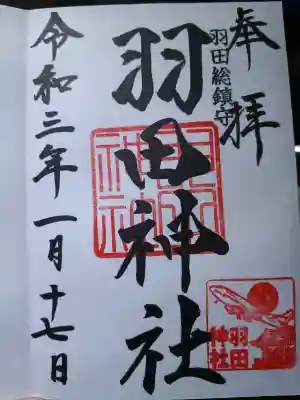 奉拝
羽田総鎮守
羽田神社
令和三年一月十七日
羽田
神社